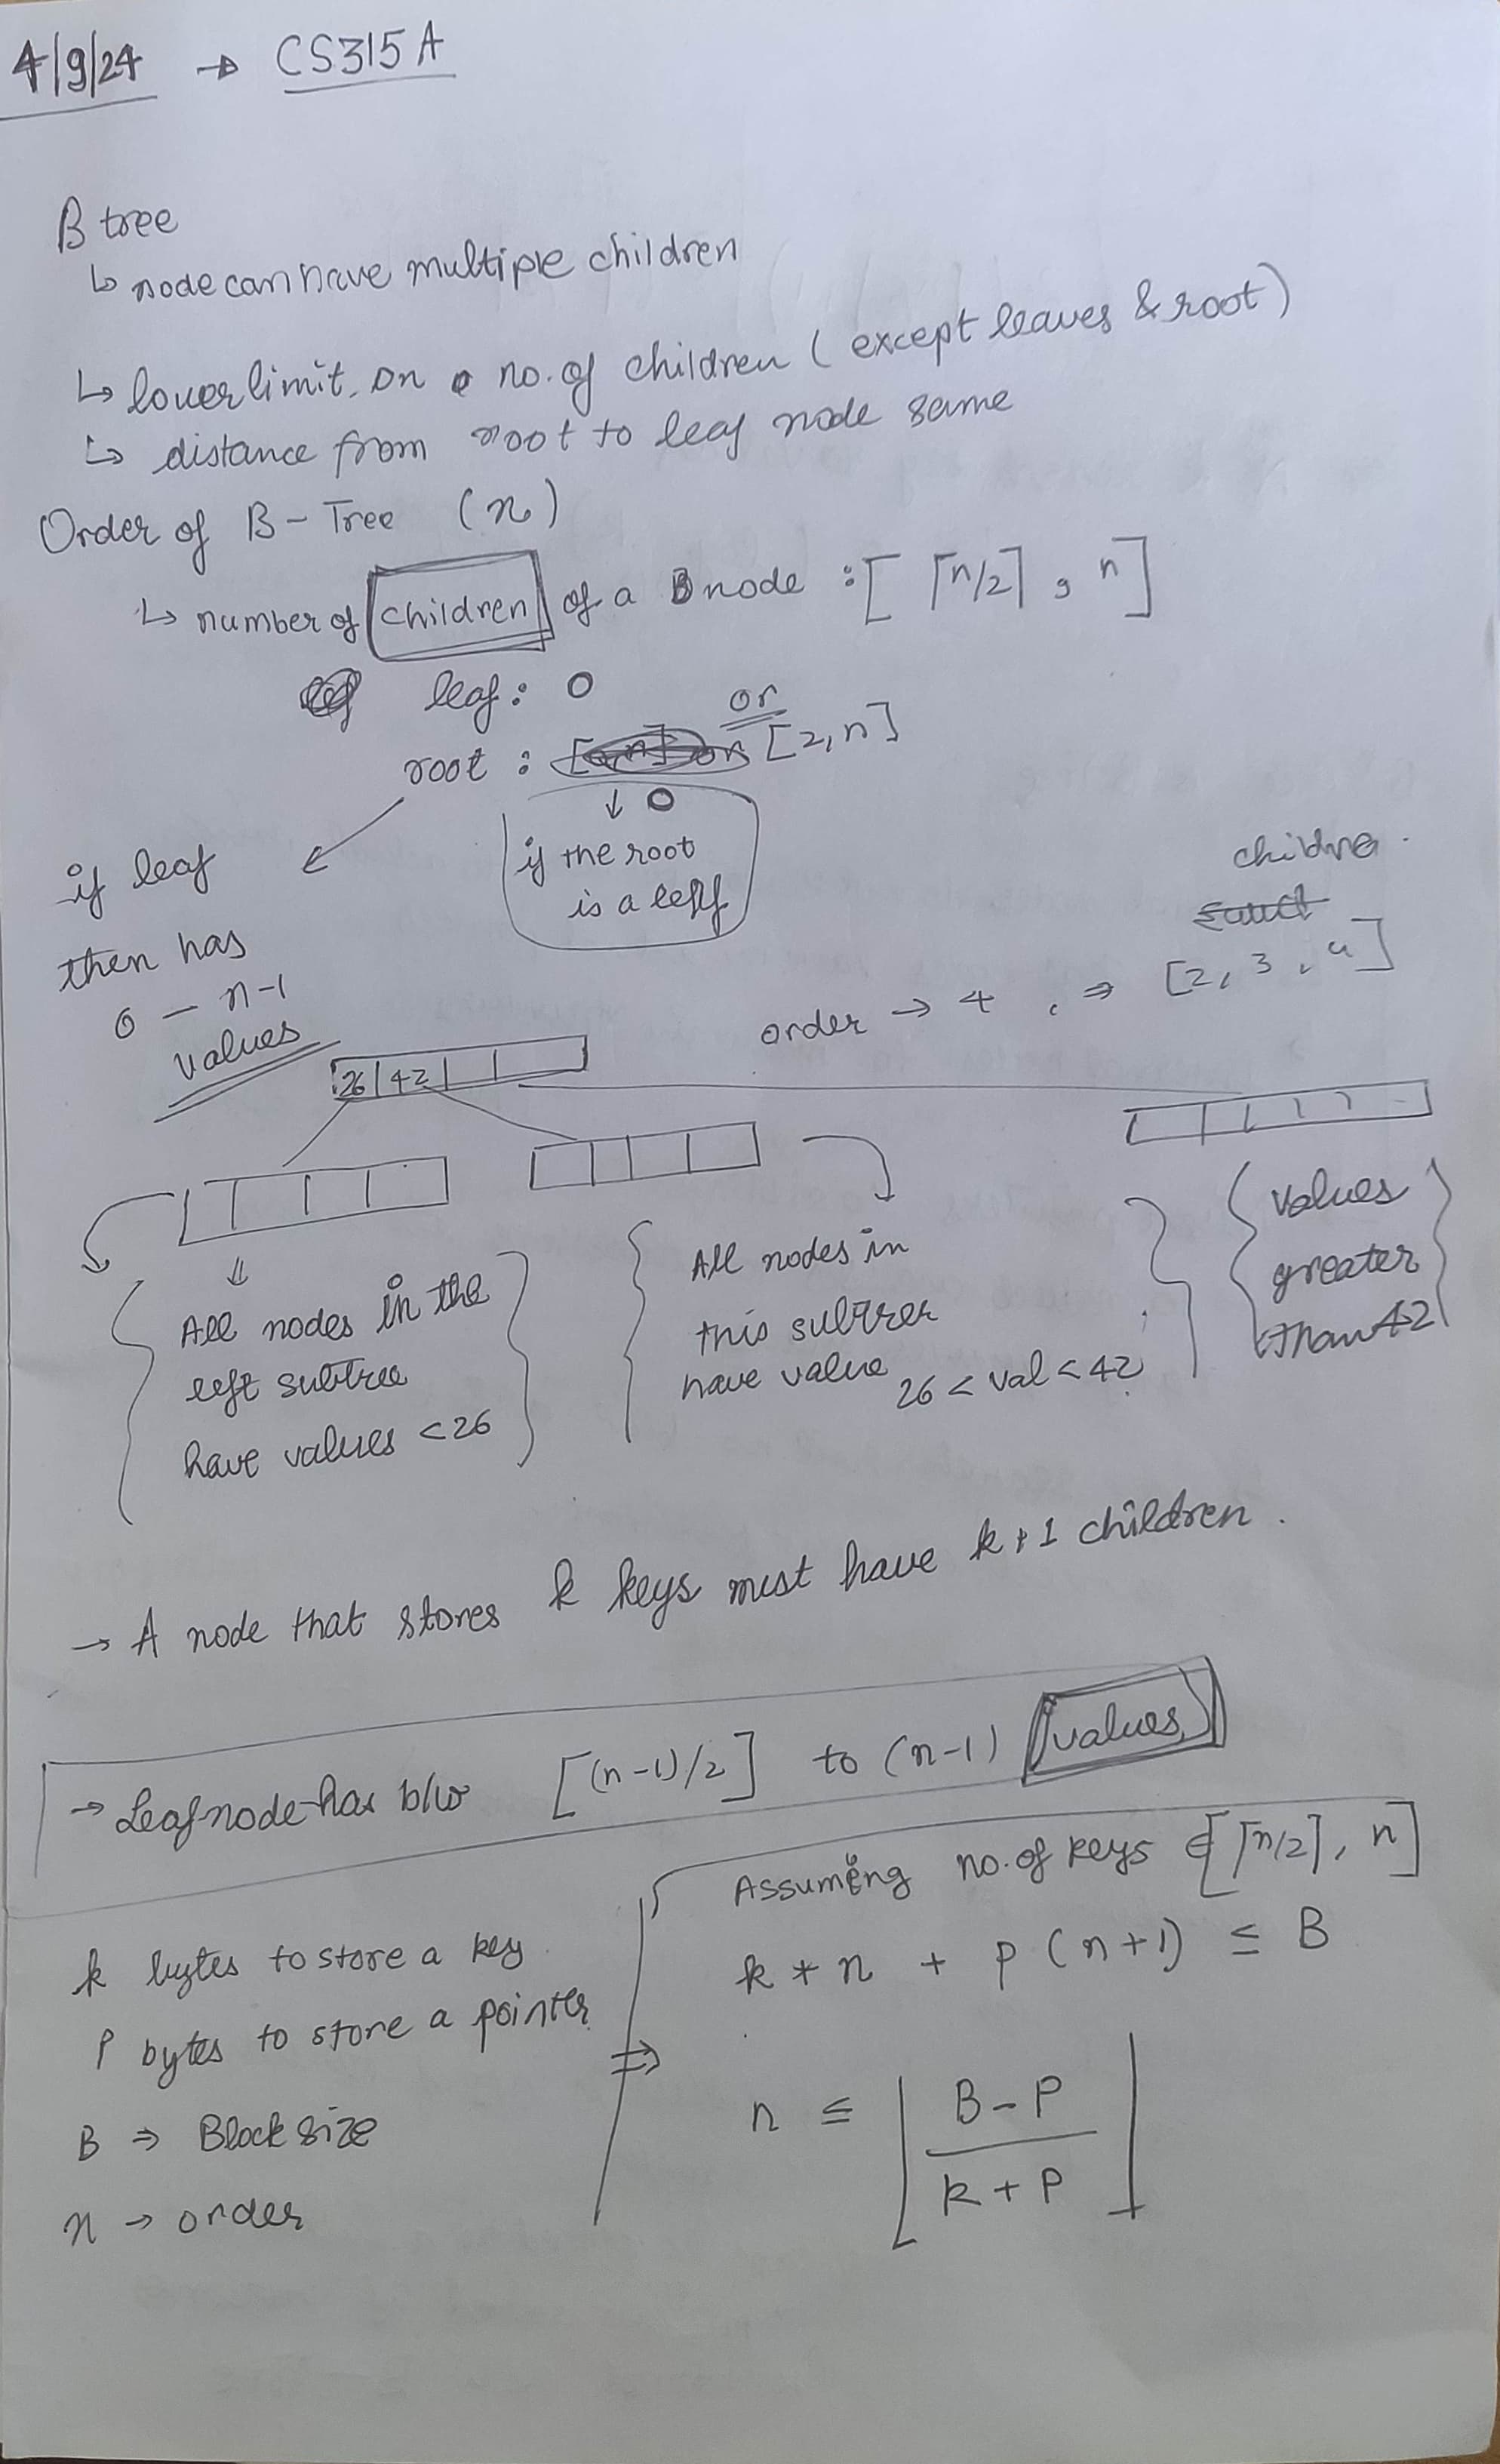 4/9/24 → CS315A
B tree
↳ node can have multiple children
↳ lower limit on no. of children (except leaves & root)
↳ distance from root to leaf node same
Order of B-Tree (n)
↳ number of children of a node : [⌈n/2⌉, n]
leaf: 0
or
root : [2, n]
↓ 0
if the root
is a leaf
if leaf
then has
0 – n-1
values
children
order → 4 , ⇒ [2, 3, 4]
26 | 42
All nodes in the
left subtree
have values < 26
All nodes in
this subtree
have value 26 < val < 42
values
greater
than 42
→ A node that stores k keys must have k+1 children.
→ Leaf node has b/w [(n-1)/2] to (n-1) values
k bytes to store a key
P bytes to store a pointer
B ⇒ Block size
n → order
⇒
Assuming no. of keys ∈ [⌈n/2⌉, n]
k * n + p (n+1) ≤ B
n ≤ ⌊ B-P / k+P ⌋